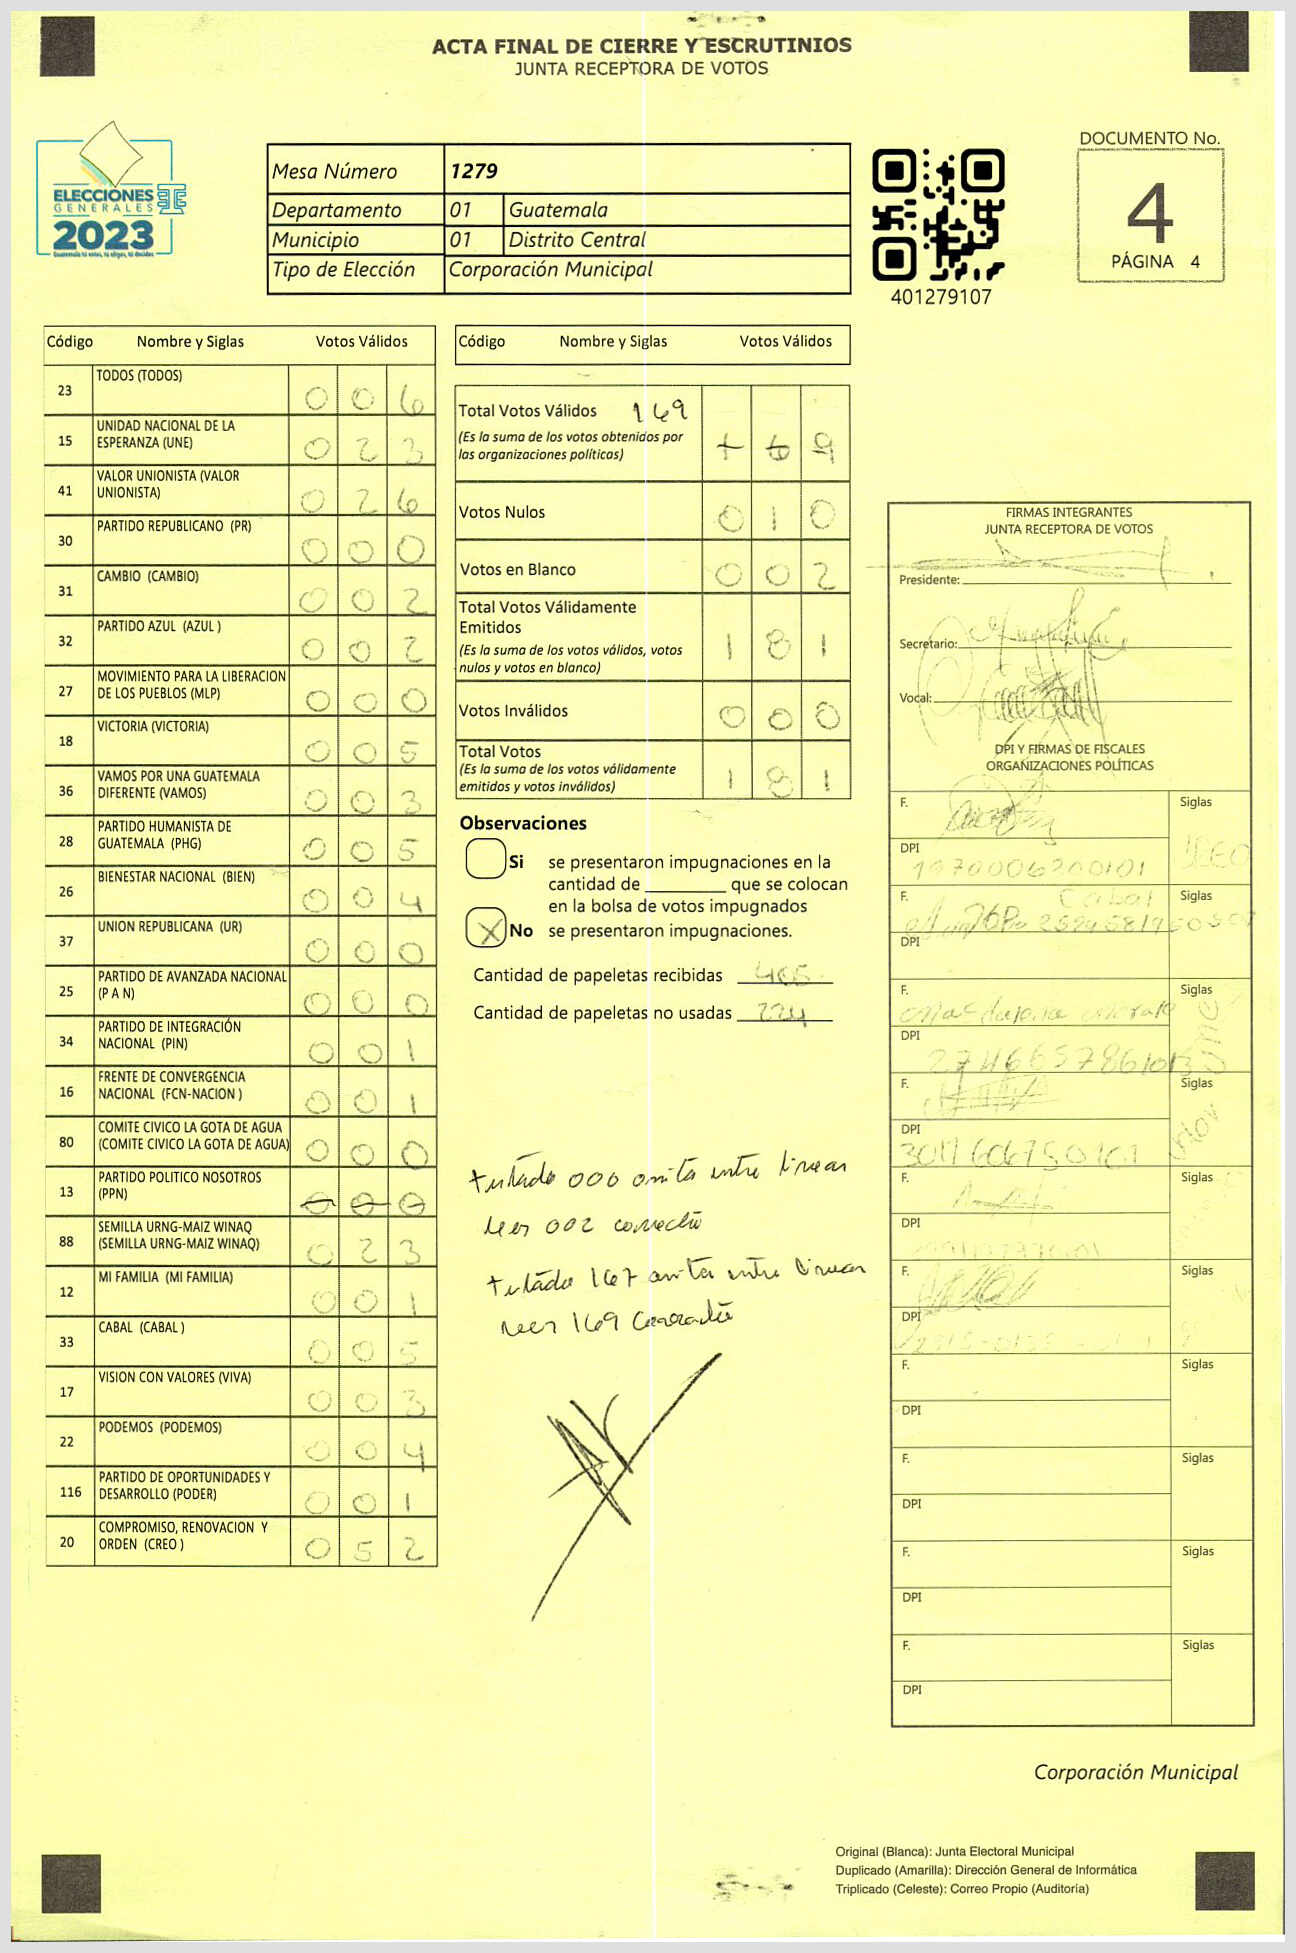 ACTA FINAL DE CIERRE Y ESCRUTINIOS
JUNTA RECEPTORA DE VOTOS
ELECCIONES
GENERALES
2023
Guatemala tú votas, tú eliges, tú decides
Mesa Número 1279
Departamento 01 Guatemala
Municipio 01 Distrito Central
Tipo de Elección Corporación Municipal
401279107
DOCUMENTO No.
4
PÁGINA 4
Código Nombre y Siglas Votos Válidos
23 TODOS (TODOS) 0 0 6
15 UNIDAD NACIONAL DE LA
ESPERANZA (UNE) 0 2 3
41 VALOR UNIONISTA (VALOR
UNIONISTA) 0 2 6
30 PARTIDO REPUBLICANO (PR) 0 0 0
31 CAMBIO (CAMBIO) 0 0 2
32 PARTIDO AZUL (AZUL ) 0 0 2
27 MOVIMIENTO PARA LA LIBERACION
DE LOS PUEBLOS (MLP) 0 0 0
18 VICTORIA (VICTORIA) 0 0 5
36 VAMOS POR UNA GUATEMALA
DIFERENTE (VAMOS) 0 0 3
28 PARTIDO HUMANISTA DE
GUATEMALA (PHG) 0 0 5
26 BIENESTAR NACIONAL (BIEN) 0 0 4
37 UNION REPUBLICANA (UR) 0 0 0
25 PARTIDO DE AVANZADA NACIONAL
(P A N) 0 0 0
34 PARTIDO DE INTEGRACIÓN
NACIONAL (PIN) 0 0 1
16 FRENTE DE CONVERGENCIA
NACIONAL (FCN-NACION ) 0 0 1
80 COMITE CIVICO LA GOTA DE AGUA
(COMITE CIVICO LA GOTA DE AGUA) 0 0 0
13 PARTIDO POLITICO NOSOTROS
(PPN) 0 0 0
88 SEMILLA URNG-MAIZ WINAQ
(SEMILLA URNG-MAIZ WINAQ) 0 2 3
12 MI FAMILIA (MI FAMILIA) 0 0 1
33 CABAL (CABAL ) 0 0 5
17 VISION CON VALORES (VIVA) 0 0 3
22 PODEMOS (PODEMOS) 0 0 4
116 PARTIDO DE OPORTUNIDADES Y
DESARROLLO (PODER) 0 0 1
20 COMPROMISO, RENOVACION Y
ORDEN (CREO ) 0 5 2
Código Nombre y Siglas Votos Válidos
Total Votos Válidos 169
(Es la suma de los votos obtenidos por
las organizaciones políticas) 1 6 9
Votos Nulos 0 1 0
Votos en Blanco 0 0 2
Total Votos Válidamente
Emitidos
(Es la suma de los votos válidos, votos
nulos y votos en blanco) 1 8 1
Votos Inválidos 0 0 0
Total Votos
(Es la suma de los votos válidamente
emitidos y votos inválidos) 1 8 1
Observaciones
Si se presentaron impugnaciones en la
cantidad de ________ que se colocan
en la bolsa de votos impugnados
X No se presentaron impugnaciones.
Cantidad de papeletas recibidas 405
Cantidad de papeletas no usadas 224
testado 000 omita entre lineas
leer 002 correcto
testado 167 omita entre lineas
leer 169 correcto
FIRMAS INTEGRANTES
JUNTA RECEPTORA DE VOTOS
Presidente:
Secretario:
Vocal:
DPI Y FIRMAS DE FISCALES
ORGANIZACIONES POLÍTICAS
F. Siglas
DPI 1970006200101 CREO
F. Cabal Siglas
DPI
F. Siglas
DPI 2746657861013 UNE
F. Siglas
DPI
F. Siglas
DPI
F. Siglas
DPI
F. Siglas
DPI
F. Siglas
DPI
F. Siglas
DPI
F. Siglas
DPI
Corporación Municipal
Original (Blanca): Junta Electoral Municipal
Duplicado (Amarilla): Dirección General de Informática
Triplicado (Celeste): Correo Propio (Auditoría)